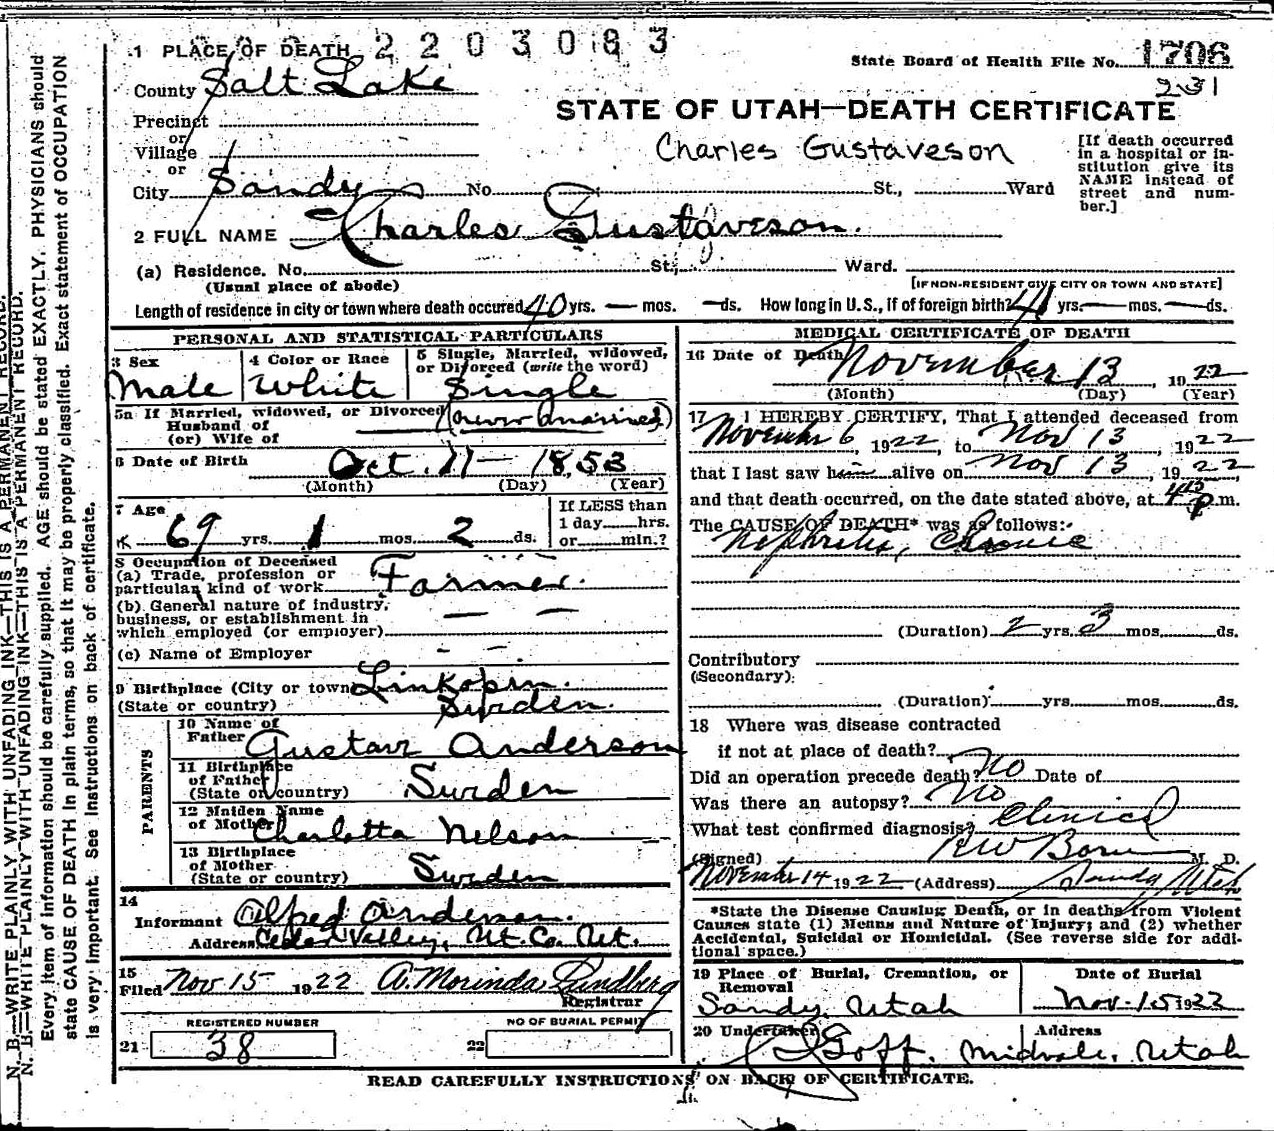 1 PLACE OF DEATH 2203083
State Board of Health File No. 1706
231
County Salt Lake
STATE OF UTAH—DEATH CERTIFICATE
Precinct
or
Village
or
Charles Gustaveson
[If death occurred in a hospital or institution give its NAME instead of street and number.]
City Sandy No. St., Ward
2 FULL NAME Charles Gustaveson.
(a) Residence. No. St., Ward.
(Usual place of abode) [IF NON-RESIDENT GIVE CITY OR TOWN AND STATE]
Length of residence in city or town where death occured 40 yrs. — mos. — ds. How long in U.S., if of foreign birth? 41 yrs — mos. — ds.
PERSONAL AND STATISTICAL PARTICULARS
3 Sex 4 Color or Race 5 Single, Married, widowed,
or Divorced (write the word)
Male White Single
5a If Married, widowed, or Divorced
Husband of (never married)
(or) Wife of
6 Date of Birth Oct. 11 — 1853
(Month) (Day) (Year)
7 Age If LESS than
69 yrs. 1 mos. 2 ds. 1 day hrs.
or min.?
8 Occupation of Deceased
(a) Trade, profession or
particular kind of work Farmer.
(b) General nature of industry,
business, or establishment in
which employed (or employer) — —
(c) Name of Employer - -
9 Birthplace (City or town) Linkopin.
(State or country) Sweden.
PARENTS
10 Name of
Father Gustav Anderson
11 Birthplace
of Father
(State or country) Sweden
12 Maiden Name
of Mother Charlotta Nelson
13 Birthplace
of Mother
(State or country) Sweden
14
Informant Alfred Anderson.
Address Cedar Valley, Ut. Co. Ut.
15
Filed Nov 15 1922 A. Morinda Lundberg
Registrar
REGISTERED NUMBER NO OF BURIAL PERMIT
21 38 22
MEDICAL CERTIFICATE OF DEATH
16 Date of Death November 13, 1922
(Month) (Day) (Year)
17 I HEREBY CERTIFY, That I attended deceased from
November 6, 1922, to Nov 13, 1922
that I last saw him alive on Nov 13, 1922,
and that death occurred, on the date stated above, at 4 p.m.
The CAUSE OF DEATH* was as follows:-
Nephritis, Chronic
(Duration) 2 yrs. 3 mos. ds.
Contributory
(Secondary):
(Duration) yrs. mos. ds.
18 Where was disease contracted
if not at place of death?
Did an operation precede death? No Date of
Was there an autopsy? No
What test confirmed diagnosis? Clinical
(Signed) M. D.
November 14 1922 (Address) Sandy, Utah
*State the Disease Causing Death, or in deaths from Violent
Causes state (1) Means and Nature of Injury; and (2) whether
Accidental, Suicidal or Homicidal. (See reverse side for addi-
tional space.)
19 Place of Burial, Cremation, or Date of Burial
Removal
Sandy, Utah Nov-15 1922
20 Undertaker Address
Goff, Midvale, Utah
READ CAREFULLY INSTRUCTIONS ON BACK OF CERTIFICATE.
N. B.—WRITE PLAINLY WITH UNFADING INK—THIS IS A PERMANENT RECORD.
N. B.—WRITE PLAINLY WITH UNFADING INK—THIS IS A PERMANENT RECORD.
Every item of information should be carefully supplied. AGE should be stated EXACTLY. PHYSICIANS should
state CAUSE OF DEATH in plain terms, so that it may be properly classified. Exact statement of OCCUPATION
is very important. See instructions on back of certificate.